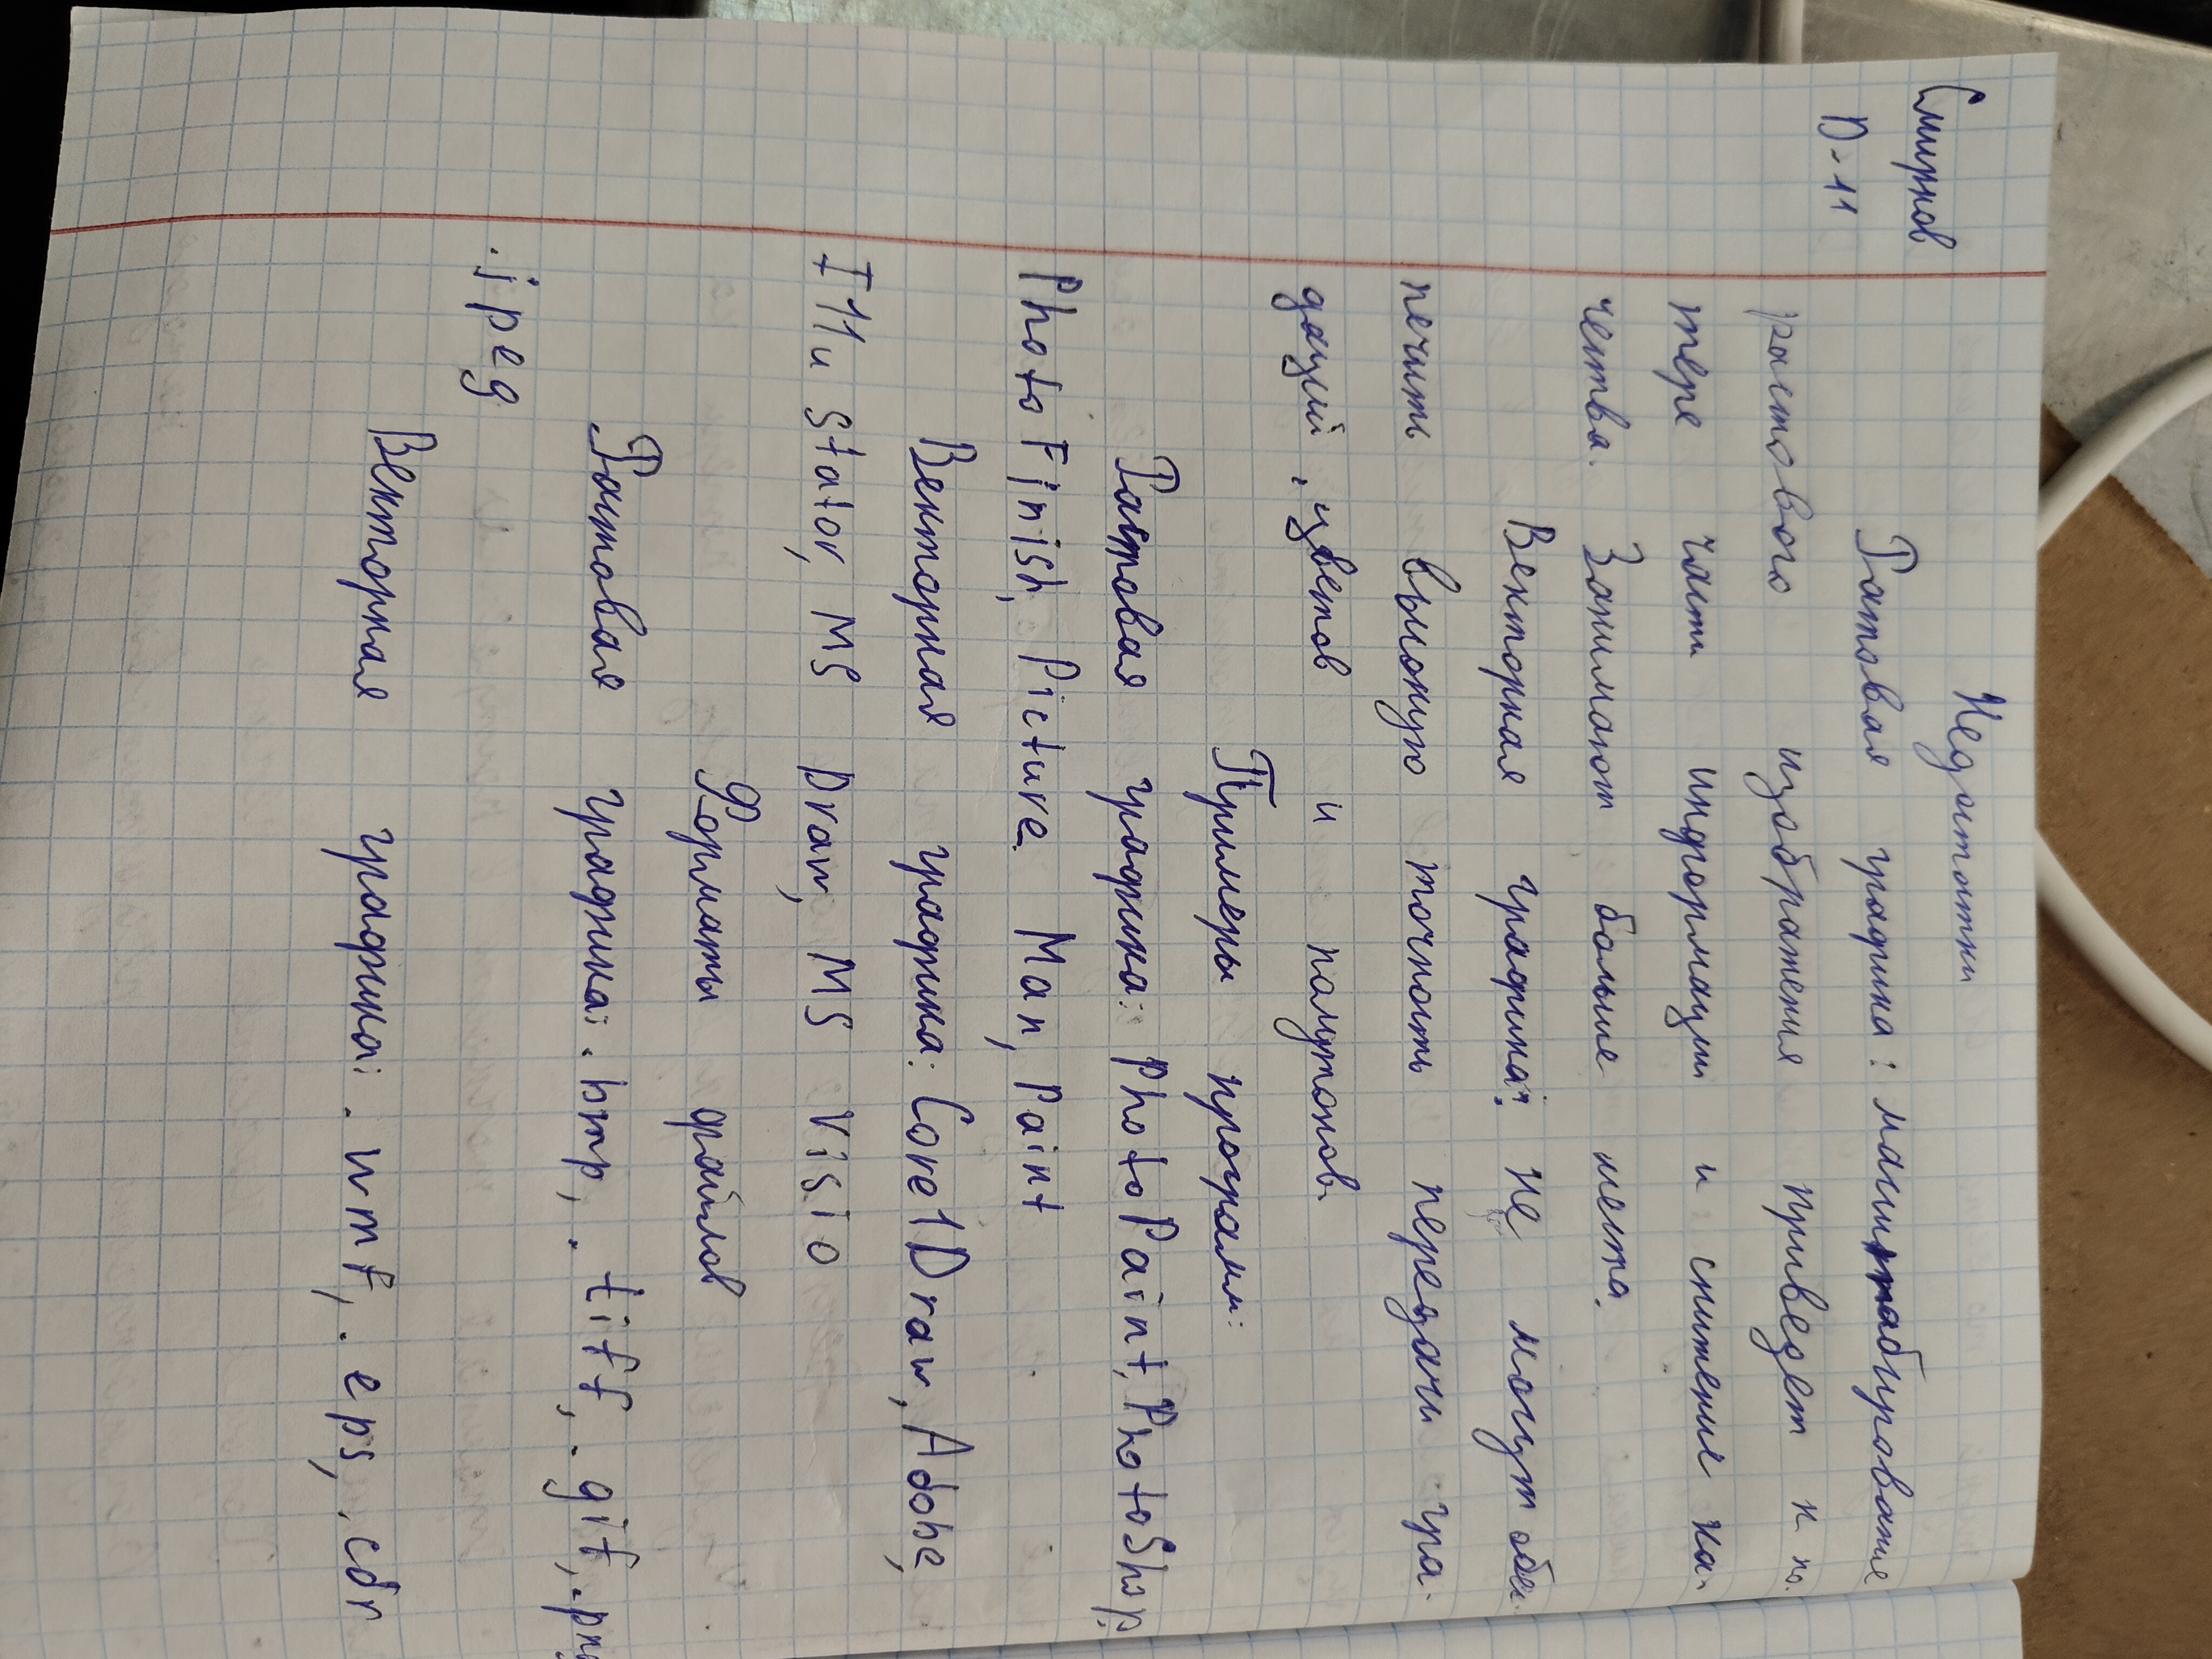 Смирнов
D-11
Недостатки
Растровая графика: масштабирование
растового изображения приведет к по-
тере части информации и снижение ка-
чества. Занимают больше места.
Векторная графика: не могут обес-
печить высокую точность передачи гра-
даций, цветов и полутонов.
Примеры программ:
Растовая графика: Photo Paint, PhotoShop,
Photo Finish, Picture Man, Paint
Векторная графика: CorelDraw, Adobe,
Illustator, MS Draw, MS Visio
Форматы файлов
Растовая графика: .bmp, .tiff, .gif, .png
.jpeg
Векторная графика: .wmf, .eps, .cdr